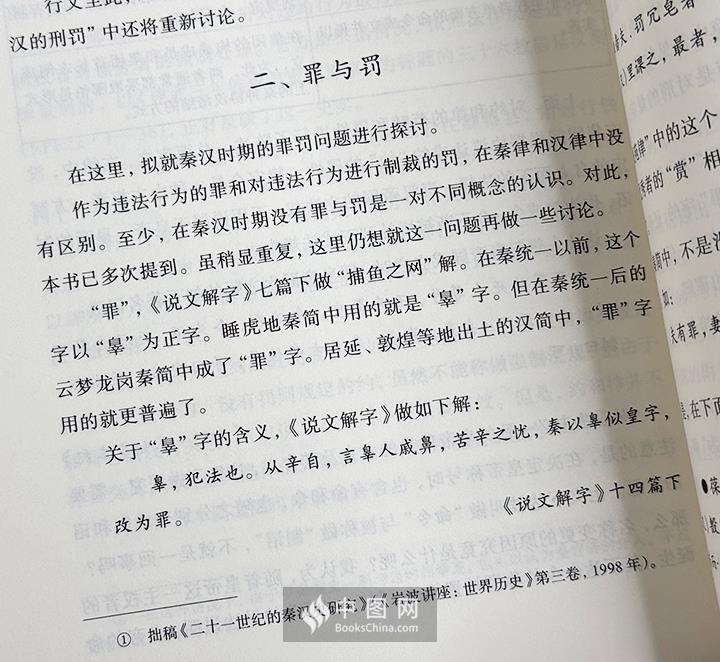 行文至此,
汉的刑罚”中还将重新讨论。
二、罪与罚
在这里，拟就秦汉时期的罪罚问题进行探讨。
作为违法行为的罪和对违法行为进行制裁的罚，在秦律和汉律中没
有区别。至少，在秦汉时期没有罪与罚是一对不同概念的认识。对此，
本书已多次提到。虽稍显重复，这里仍想就这一问题再做一些讨论。
“罪”，《说文解字》七篇下做“捕鱼之网”解。在秦统一以前，这个
字以“辠”为正字。睡虎地秦简中用的就是“辠”字。但在秦统一后的
云梦龙岗秦简中成了“罪”字。居延、敦煌等地出土的汉简中，“罪”字
用的就更普遍了。
关于“辠”字的含义，《说文解字》做如下解：
辠，犯法也。从辛自，言辠人戚鼻，苦辛之忧，秦以辠似皇字，
改为罪。
《说文解字》十四篇下
① 拙稿《二十一世纪的秦汉史研究》（《岩波讲座：世界历史》第三卷，1998年）。
中图网
BooksChina.com
夫、罚冗皂者
里课之，最者，
律”中的这个
者的“赏”相
中，不是
夫有罪，妻
在下